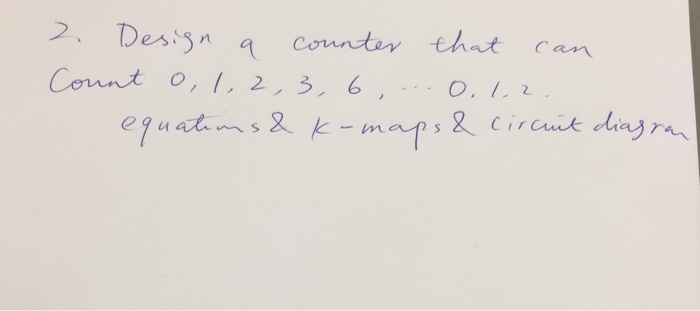 2. Design a counter that can
Count 0, 1, 2, 3, 6, ... 0, 1, 2.
equations & k-maps & circuit diagram